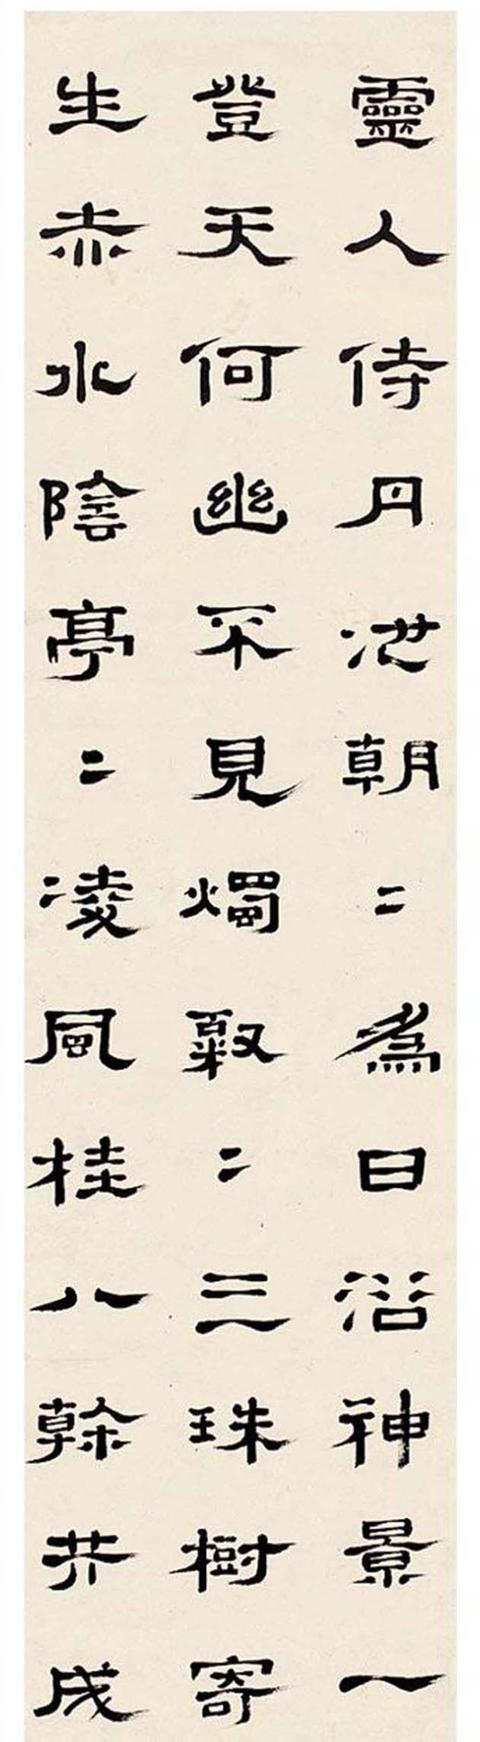 靈人侍丹池朝〻為日浴神景一
登天何幽不見燭粲〻三珠樹寄
生赤水陰亭〻凌風桂八榦共成